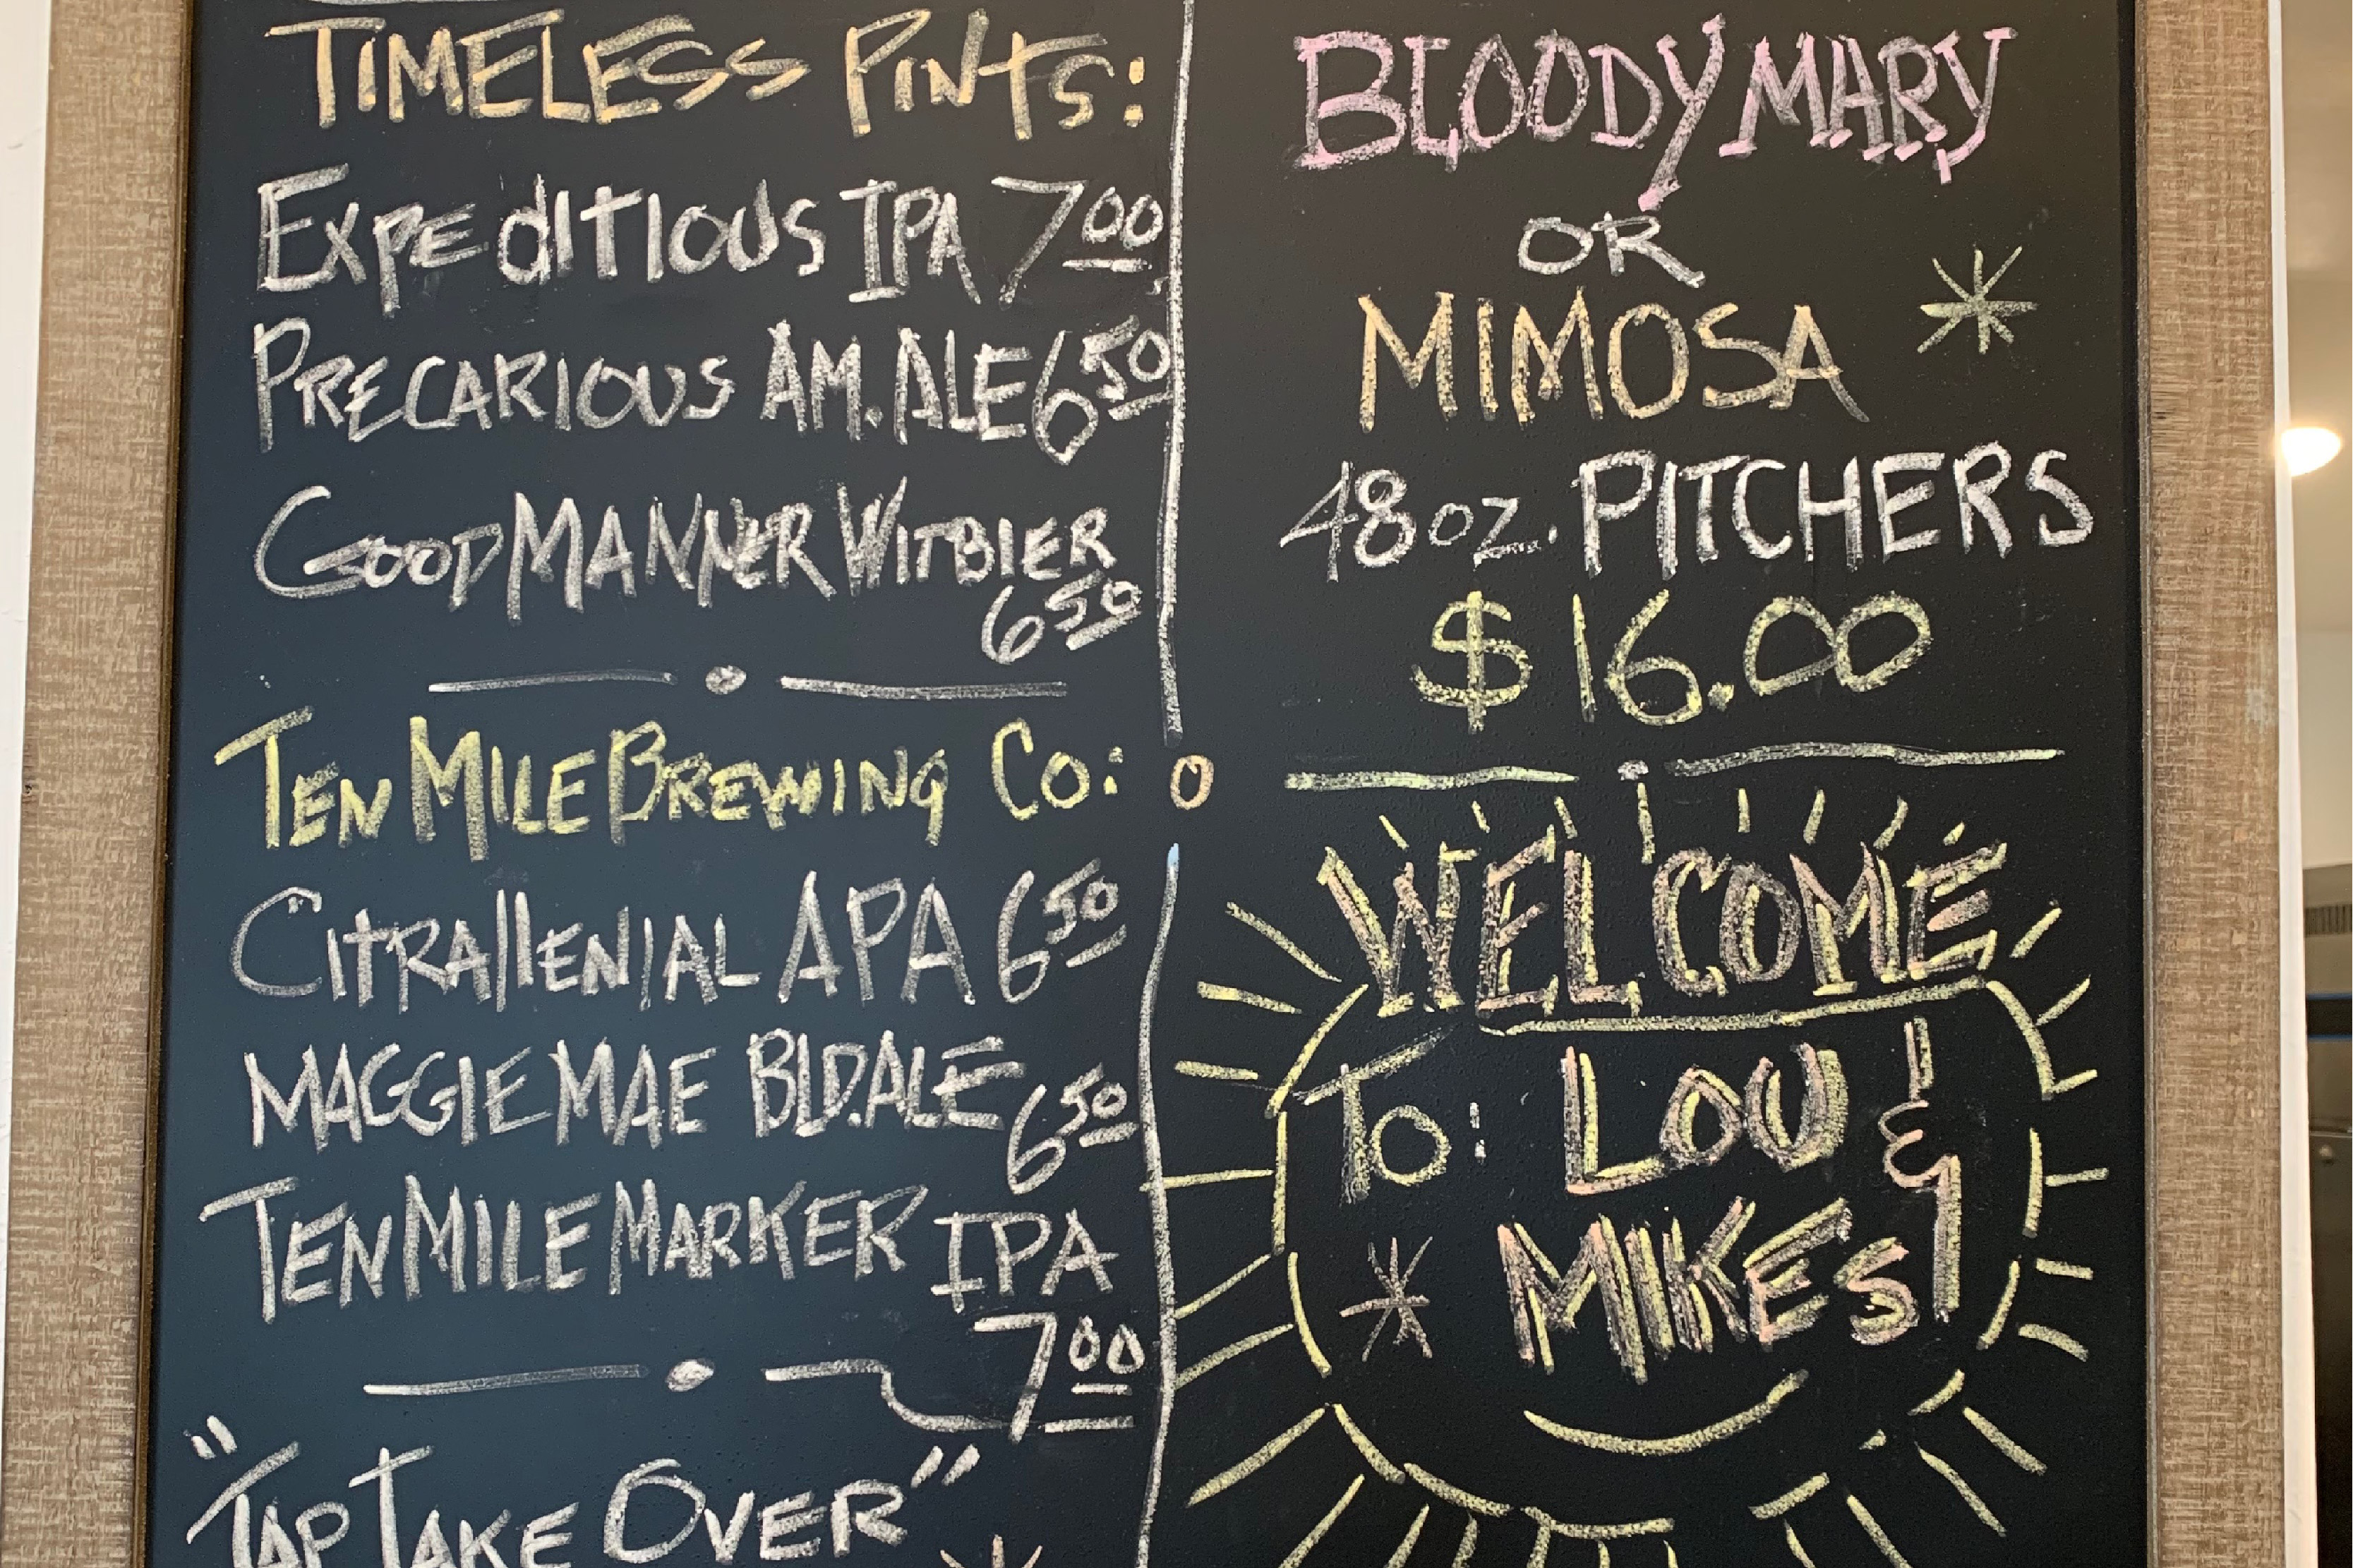 TIMELESS PINTS:
EXPEDITIOUS IPA 7.00
PRECARIOUS AM. ALE 6.50
GOOD MANNER WITBIER
6.50
TEN MILE BREWING CO:
CITRALLENIAL APA 6.50
MAGGIE MAE BLD. ALE 6.50
TEN MILE MARKER IPA
7.00
"TAP TAKE OVER"
BLOODY MARY
OR
MIMOSA
48 oz. PITCHERS
$16.00
WELCOME
TO: LOU &
MIKES